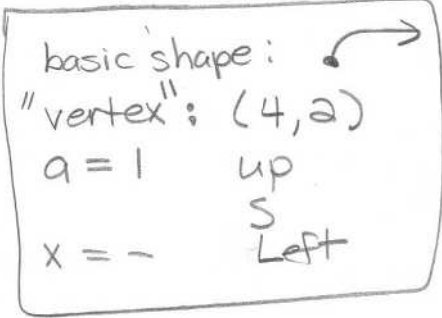 basic shape:
"vertex": (4,2)
a = 1 up
S
x = - Left